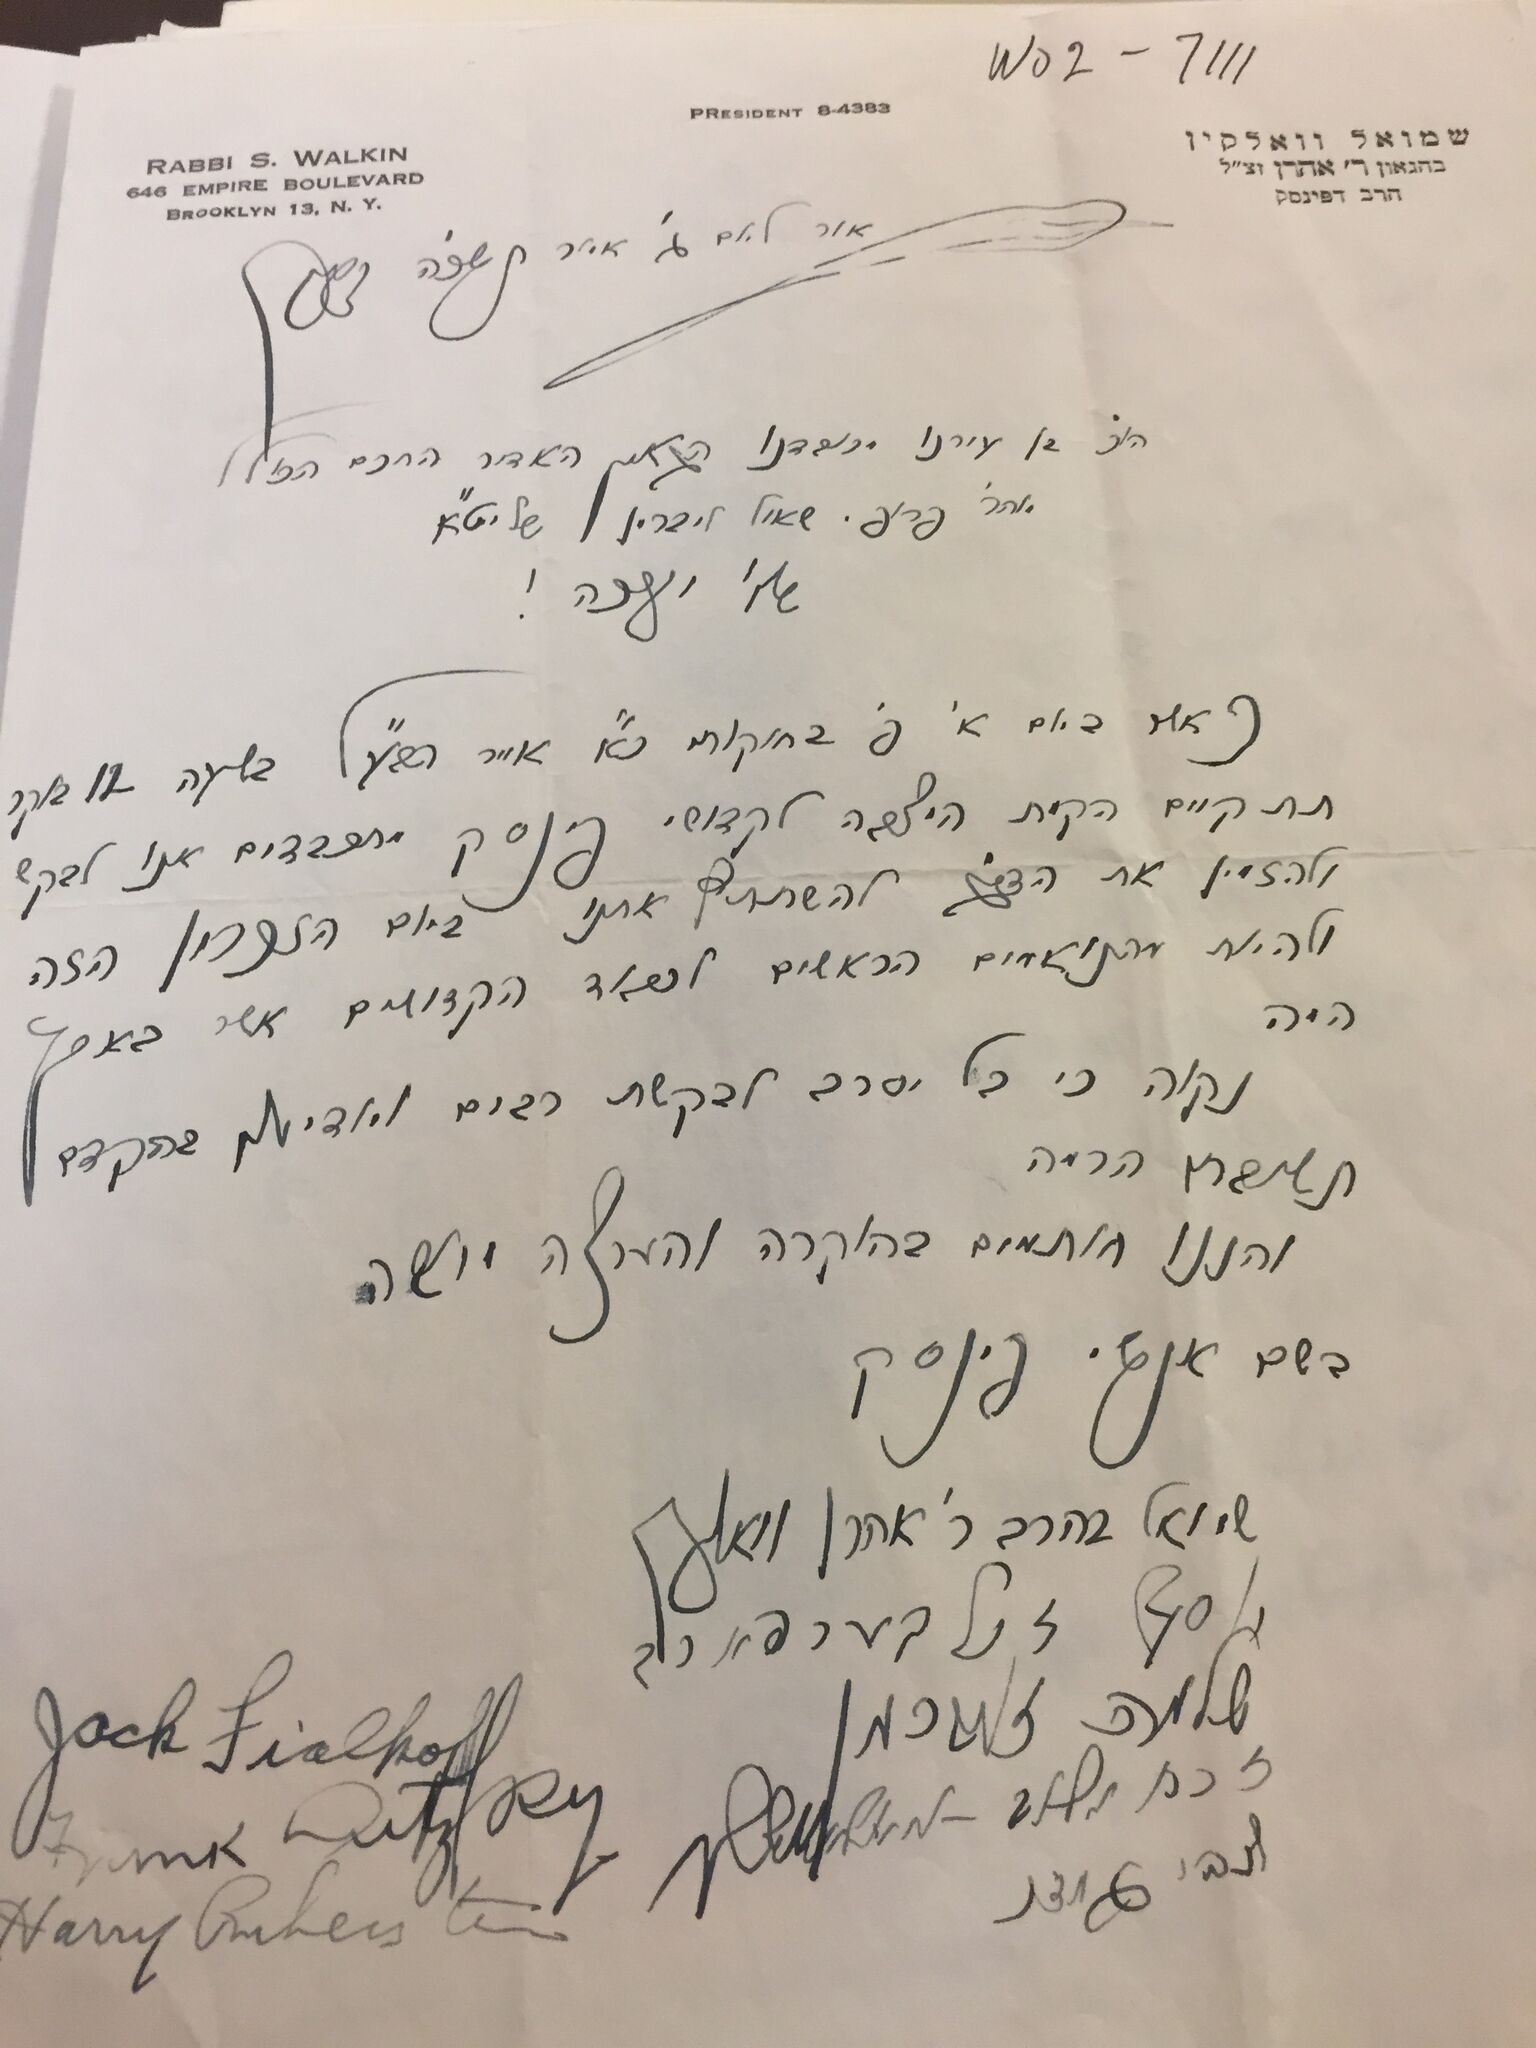 WO2 - 7111
PRESIDENT 8-4383
RABBI S. WALKIN
646 EMPIRE BOULEVARD
BROOKLYN 13, N. Y.
שמואל וואלקין
בהגאון ר' אהרן זצ"ל
הרב דפינסק
אור ליום ג' אייר תשכ"ה
בן עירנו מכובדנו הגאון האדיר החכם הכולל
פרופ. שאול ליברמן שליט"א
שלו' וישע רב !
כאשר ביום א' פ' בחוקותי כ"א אייר הבע"ל בשעה 12 בוקר
תתקיים הקמת המצבה לקדושי פינסק מתכבדים אנו לבקש
ולהזמין את להשתתף אתנו ביום הזכרון הזה
ולהיות מהנואמים הראשים לכבוד הקדושים אשר באסף
המה
נקוה כי בל יסרב לבקשת רבים ויודיענו בהקדם
הרמה
והננו חותמים בהוקרה והערצה
בשם אנשי פינסק
שמואל בהרב ר' אהרן וואלקין
יוסף זיל בערפארב
שלמה זוכמן
צבי
Jack Fialkoff
Frank
Harry Rubenstein